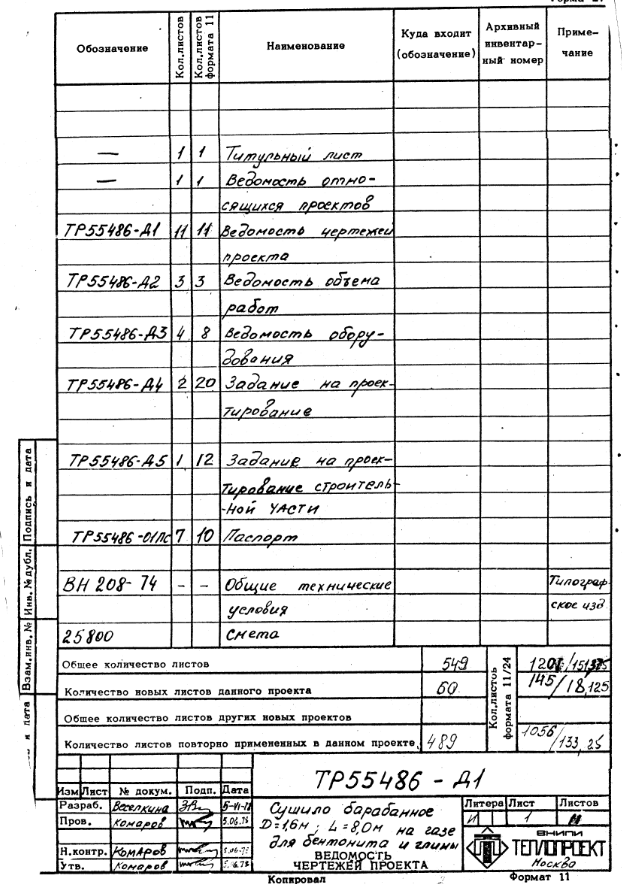 Форма 21
Обозначение
Кол.листов
Кол.листов формата 11
Наименование
Куда входит (обозначение)
Архивный инвентарный номер
Примечание
— 1 1 Титульный лист
— 1 1 Ведомость отно-
сящихся проектов
ТР55486-Д1 11 11 Ведомость чертежей
проекта
ТР55486-Д2 3 3 Ведомость объема
работ
ТР55486-Д3 4 8 Ведомость обору-
дования
ТР55486-Д4 2 20 Задание на проек-
тирование
ТР55486-Д5 1 12 Задание на проек-
тирование строитель-
ной части
ТР55486-01ПС 7 10 Паспорт
ВН 208-74 - - Общие технические Типограф-
условия ское изд
25800 Смета
Общее количество листов 549
Количество новых листов данного проекта 60 145/18,125
Общее количество листов других новых проектов
Количество листов повторно примененных в данном проекте 489 1056/133,25
Кол.листов формата 11/24
Подпись и дата
Инв.№ дубл.
Взам.инв.№
и дата
ТР55486-Д1
Изм Лист № докум. Подп. Дата
Разраб. Веселкина
Пров. Комаров 5.06.78
Н.контр. Комаров
Утв. Комаров
Сушило барабанное
D=1,6м; L=8,0м на газе
для бентонита и глины
ВЕДОМОСТЬ
ЧЕРТЕЖЕЙ ПРОЕКТА
Литера Лист Листов
И 1
ВНИПИ
ТЕПЛОПРОЕКТ
Москва
Копировал Формат 11